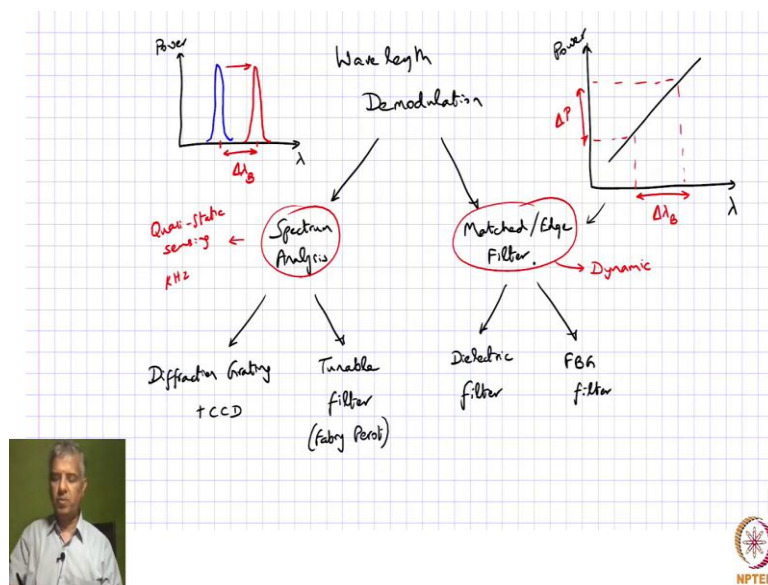 Power
λ
Δλ_B
Wavelength
Demodulation
Power
ΔP
λ
Δλ_B
Quasi-Static
sensing
kHz
Spectrum
Analysis
Matched/Edge
Filter.
Dynamic
Diffraction Grating
+CCD
Tunable
filter
(Fabry Perot)
Dielectric
filter
FBG
filter
NPTEL